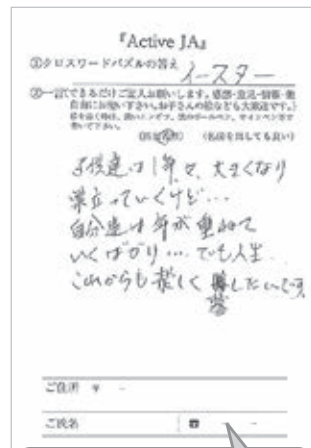 『Active JA』
①クロスワードパズルの答え
イースター
②一言(できるだけご記入お願いします。感想・意見・情報・無
自由にお使い下さい。お子さんの絵なども大歓迎です。)
(匿名希望) (名前を出しても良い)
子供達は1年で、大きくなり
巣立っていくけど…
自分達は年が重ねて
いくばかり…でも人生
これからも楽しく したいです
ご住所 〒 -
ご氏名 ☎ - -